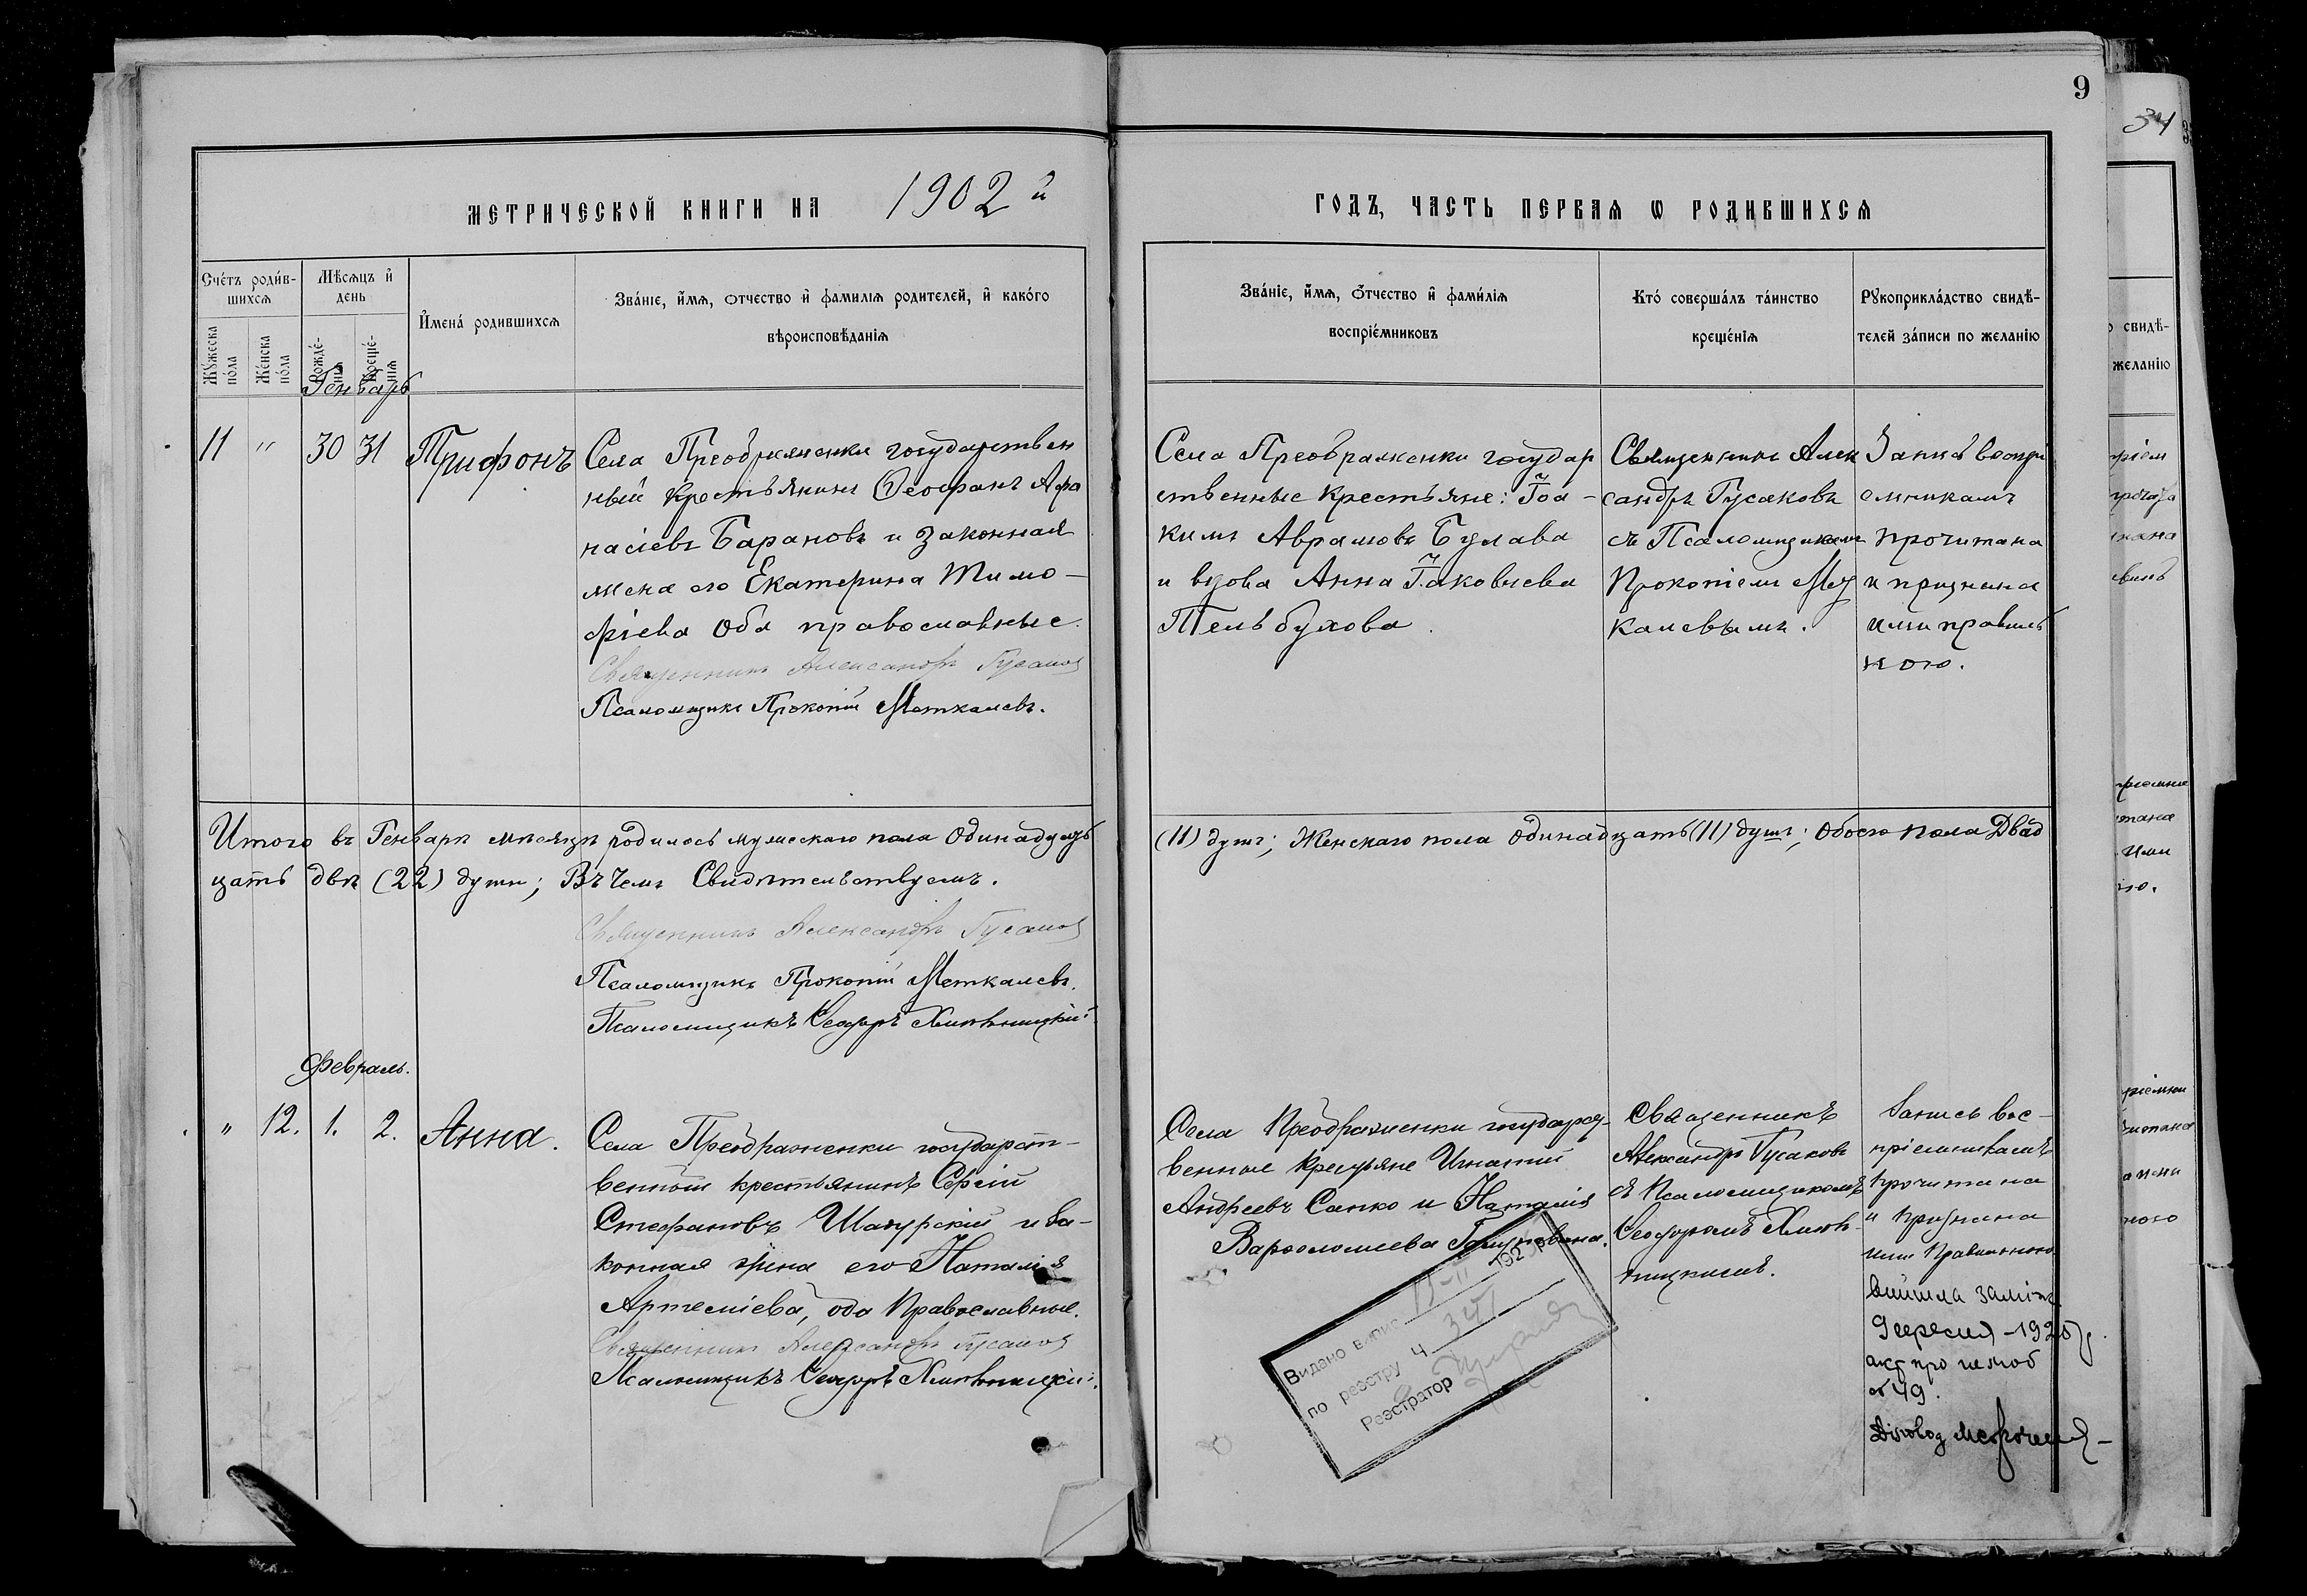 9
34
МЕТРИЧЕСКОЙ КНИГИ НА 1902й
ГОДЪ, ЧАСТЬ ПЕРВАЯ Ѡ РОДИВШИХСЯ
Счетъ родив-
шихся
Мужеска
пола
Женска
пола
Мѣсяцъ и
день
Рожде-
нія
Креще-
нія
Имена родившихся
Званіе, имя, отчество и фамилія родителей, и какого
вѣроисповѣданія
Званіе, имя, отчество и фамилія
воспріемниковъ
Кто совершалъ таинство
крещенія
Рукоприкладство свидѣ-
телей записи по желанію
Генварь
11 " 30 31 Трифонъ
Села Преображенки государствен
ный крестьянинъ Ѳеофанъ Афа
насіевъ Барановъ и законная
жена его Екатерина Тимо-
фіева оба православные.
Священникъ Александръ Гусаковъ
Псаломщикъ Прокопій Меткалевъ.
Села Преображенки государ
ственные крестьяне: Іоа-
кимъ Аврамовъ Булава
и вдова Анна Іаковлева
Тельбухова.
Священникъ Алек
сандръ Гусаковъ
съ Псаломщикомъ
Прокопіемъ Мет
калевымъ.
Запись воспрі
емникамъ
прочитана
и признана
ими правиль
ною.
Итого въ Генварѣ мѣсяцѣ родилось мужескаго пола одинадцать
(11) душъ; Женскаго пола одинадцать (11) душъ; обоего пола Двад
цать двѣ (22) души; Въ чемъ Свидѣтельствуемъ.
Священникъ Александръ Гусаковъ
Псаломщикъ Прокопій Меткалевъ.
Псаломщикъ Ѳеодоръ Хмѣльницкій.
Февраль.
" 12. 1. 2. Анна.
Села Преображенки государст-
венный крестьянинъ Сергій
Стефановъ Шапурскій и за-
конная жена его Наталія
Артеміева, оба Православные.
Священникъ Александръ Гусаковъ
Псаломщикъ Ѳеодоръ Хмѣльницкій.
Села Преображенки государст-
венные крестьяне Игнатій
Андреевъ Сапко и Наталія
Варѳоломеева
Священникъ
Александръ Гусаковъ
съ Псаломщикомъ
Ѳеодоромъ Хмѣль-
ницкимъ.
Запись вос-
пріемникамъ
прочитана
и признана
ими правильною.
Вийшла заміж
акт про шлюб
№ 49.
Діловод
Видано випис 192 р
по реэстру Ч
Реэстратор